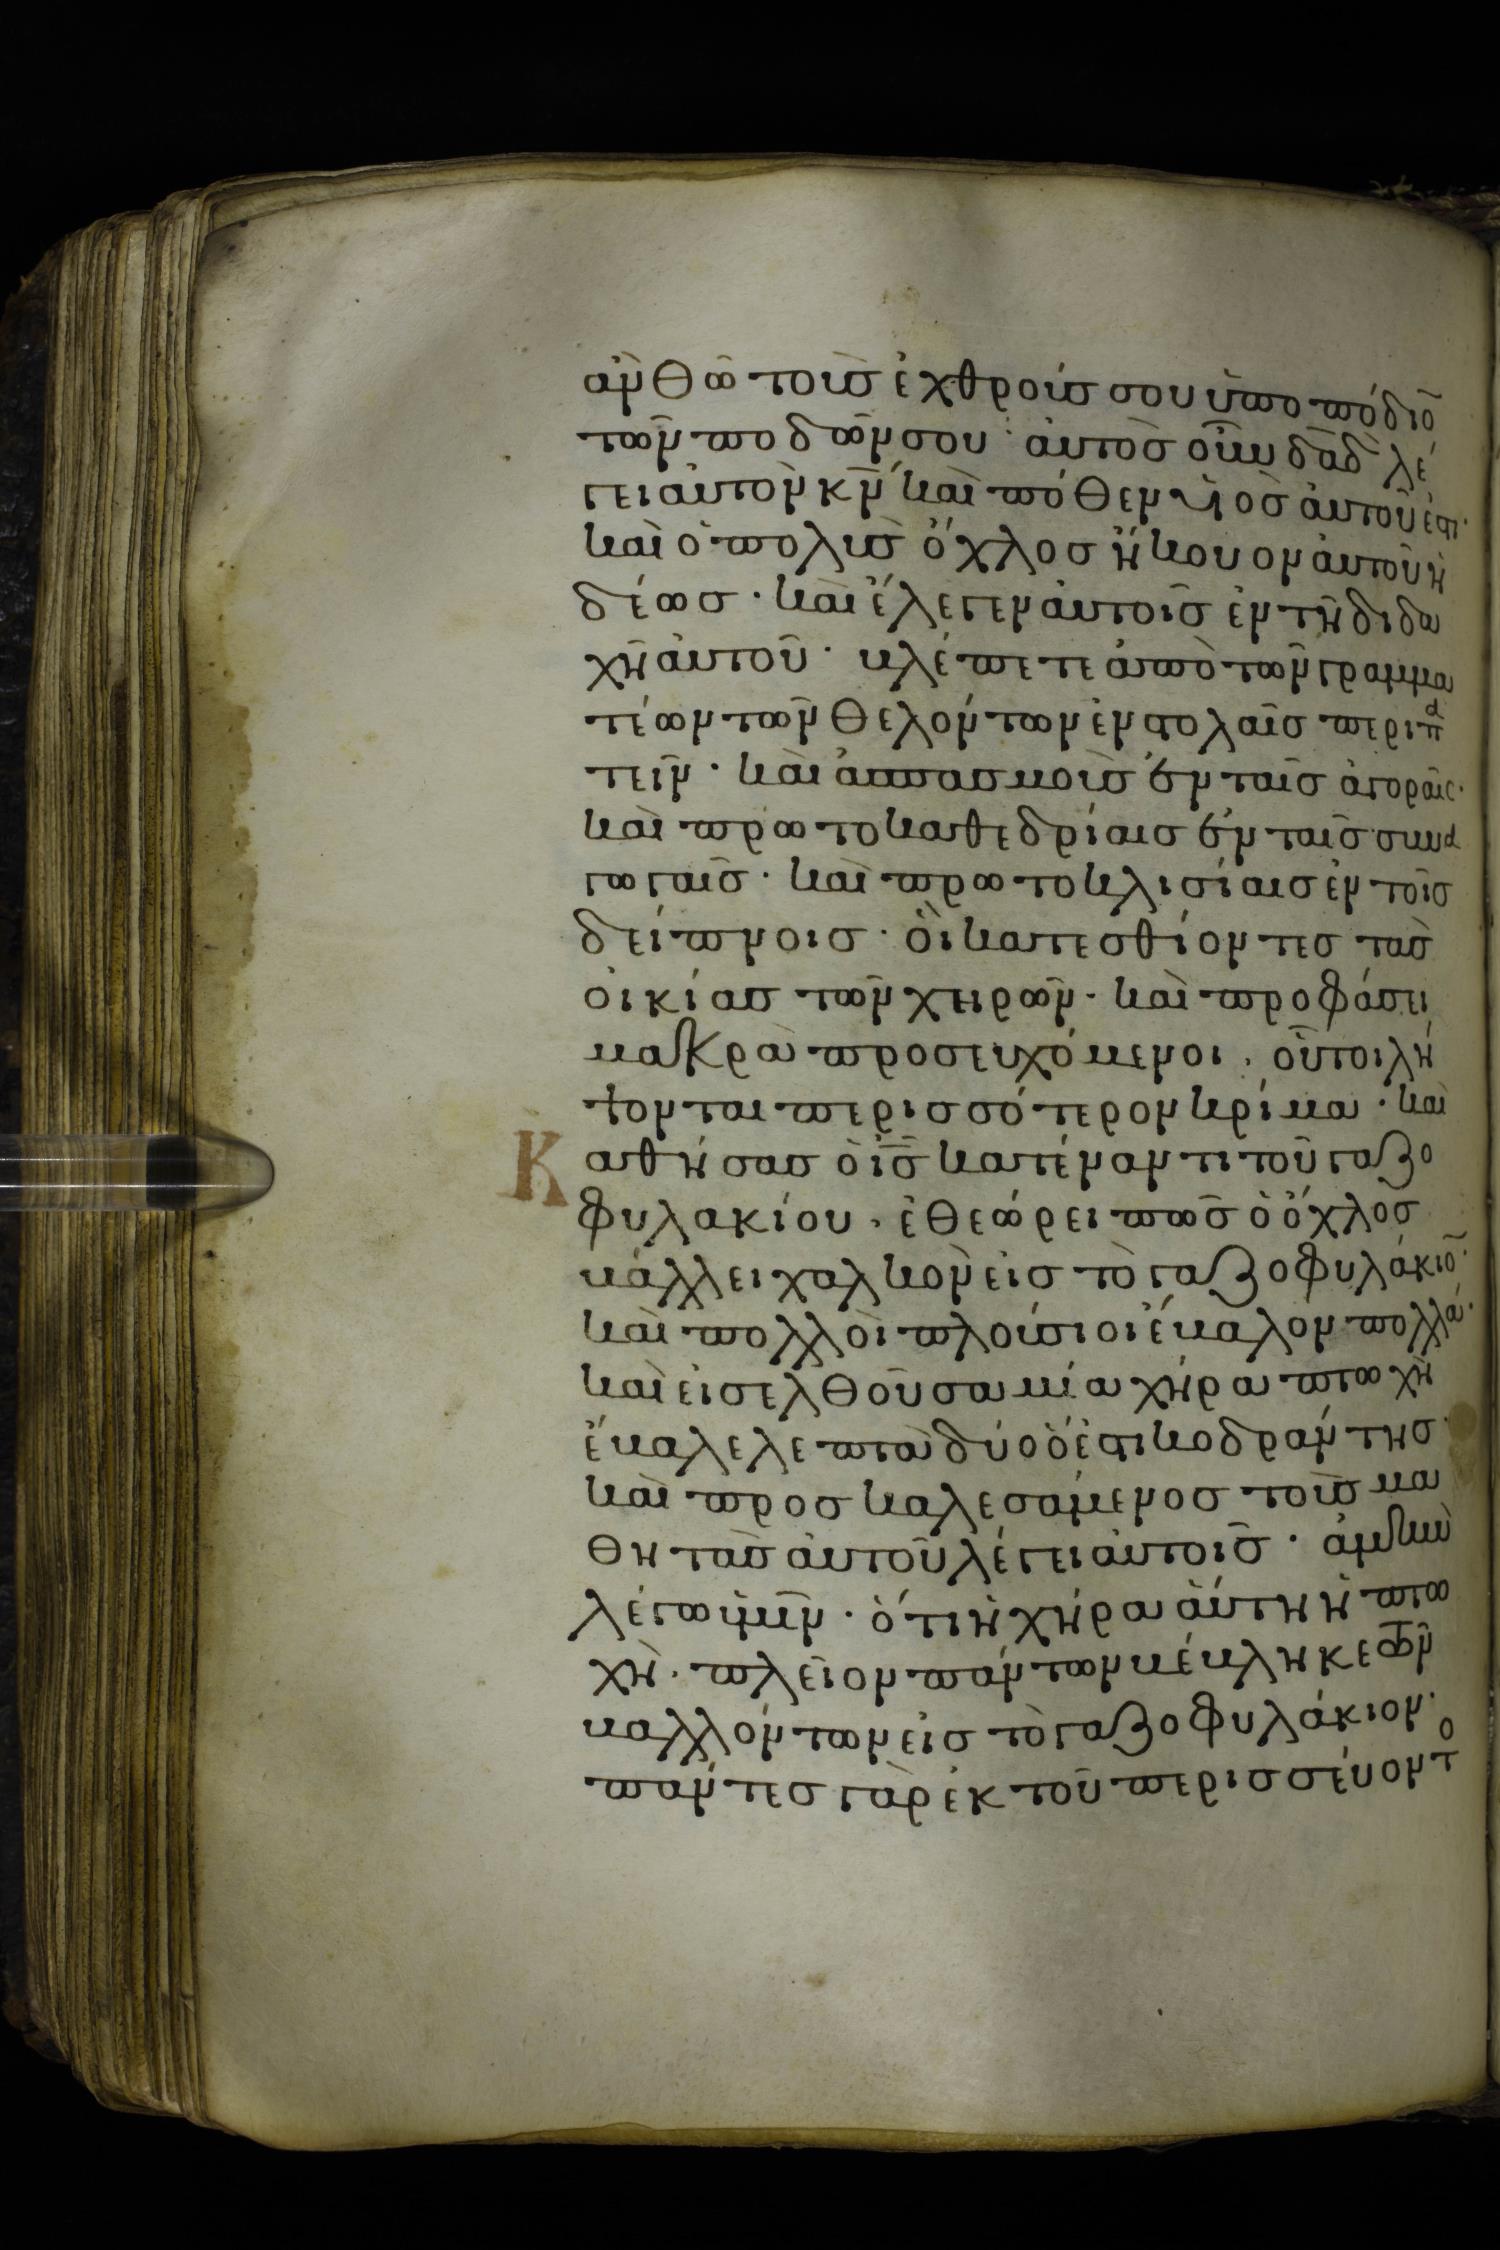 ἂν θῶ τοὺς ἐχθρούς σου ὑποπόδιο̅
τῶν ποδῶν σου· αὐτὸς οὖν δα̅δ λέ
γει αὐτὸν κ̅ν καὶ πόθεν υἱὸς αὐτοῦ ἐστι·
καὶ ὁ πολὺς ὄχλος ἤκουον αὐτοῦ ἡ
δέως· καὶ ἔλεγεν αὐτοῖς ἐν τῇ διδα
χῇ αὐτοῦ· βλέπετε ἀπὸ τῶν γραμμα
τέων τῶν θελόντων ἐν στολαῖς περιπα
τεῖν· καὶ ἀσπασμοὺς ἐν ταῖς ἀγοραῖς·
καὶ πρωτοκαθεδρίαις ἐν ταῖς συνα
γωγαῖς· καὶ πρωτοκλισίαις ἐν τοῖς
δείπνοις· οἱ κατεσθίοντες τὰς
οἰκίας τῶν χηρῶν· καὶ προφάσει
μακρὰ προσευχόμενοι· οὗτοι λή
ψονται περισσότερον κρίμα· καὶ
Κ αθήσας ὁ ι̅ς κατέναντι τοῦ γαζο
φυλακίου· ἐθεώρει πῶς ὁ ὄχλος
βάλλει χαλκὸν εἰς τὸ γαζοφυλάκιο̅·
καὶ πολλοὶ πλούσιοι ἔβαλον πολλά·
καὶ εἰσελθοῦσα μία χήρα πτωχὴ
ἔβαλε λεπτὰ δύο ὅ ἐστι κοδράντης·
καὶ προσκαλεσάμενος τοὺς μα
θητὰς αὐτοῦ λέγει αὐτοῖς· ἀμὴν
λέγω ὑμῖν· ὅτι ἡ χήρα αὕτη ἡ πτω
χὴ· πλεῖον πάντων βέβληκε τῶν
βαλλόντων εἰς τὸ γαζοφυλάκιον·
πάντες γὰρ ἐκ τοῦ περισσεύοντο